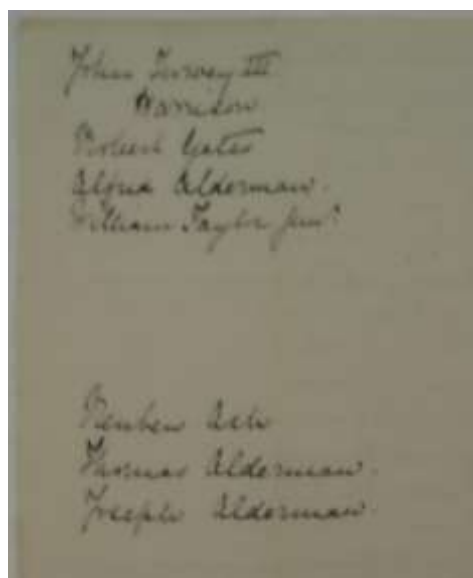 John Turvey III
Harrison
Robert Yates
Alfred Alderman.
William Taylor Junr
Reuben Ash
Thomas Alderman.
Joseph Alderman.